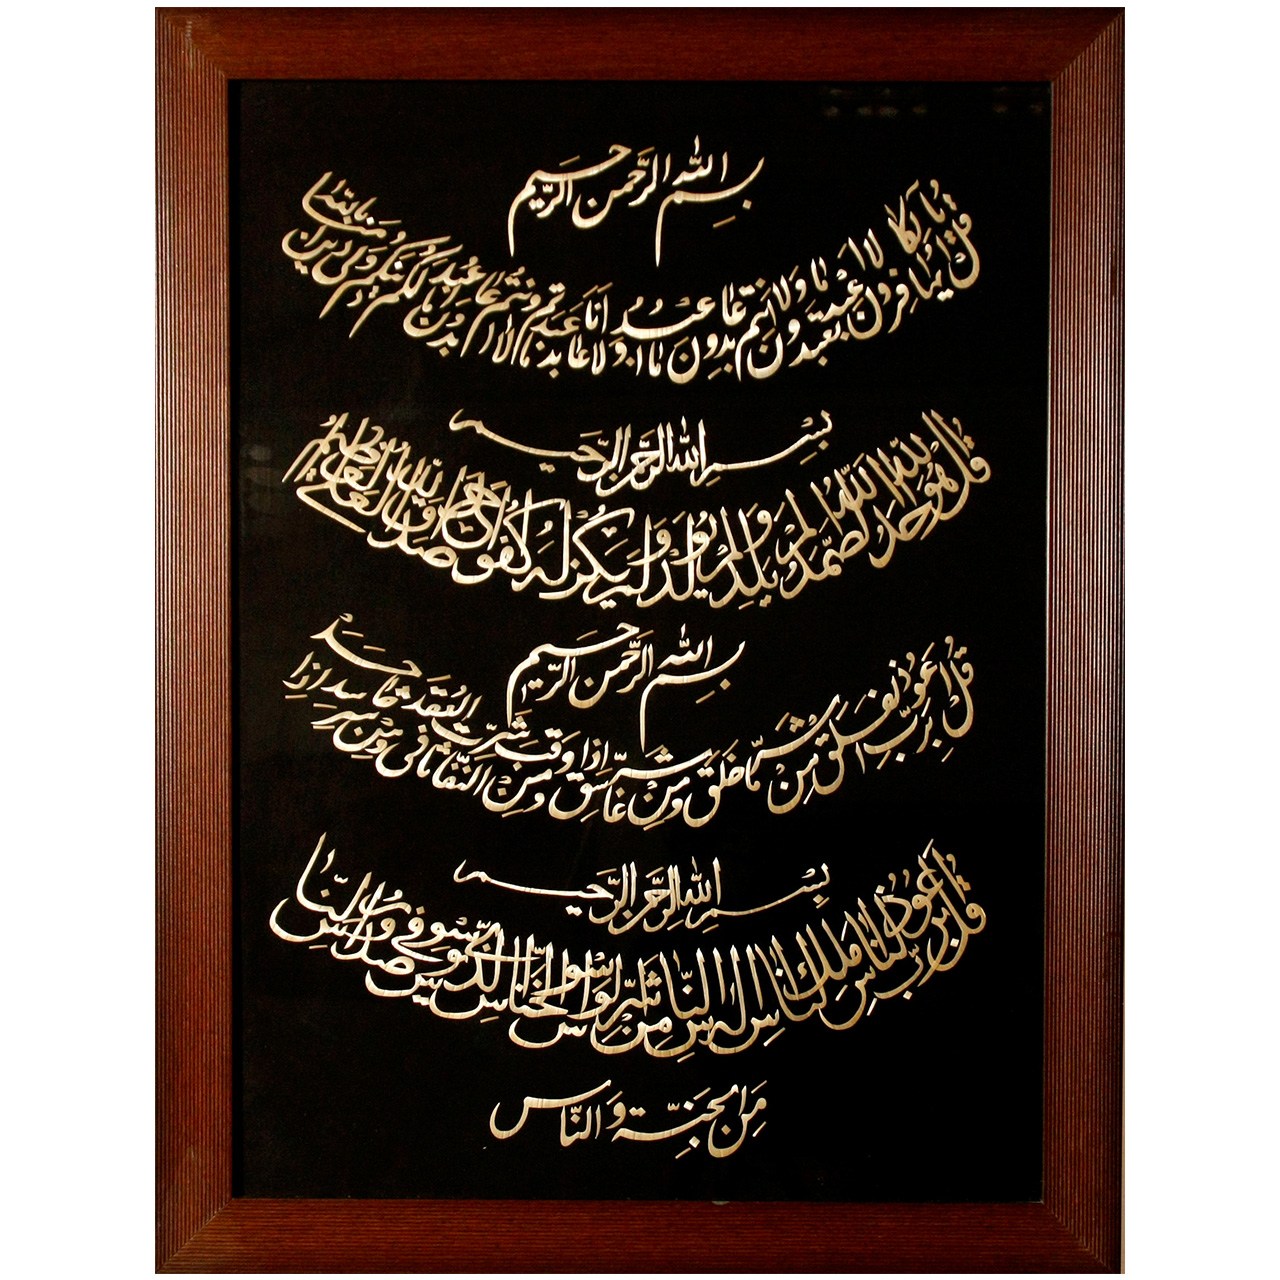 بسم الله الرحمن الرحيم
قل يا ايها الكافرون لا اعبد ما تعبدون ولا انتم عابدون ما اعبد ولا انا عابد ما عبدتم ولا انتم عابدون ما اعبد لكم دينكم ولي دين
بسم الله الرحمن الرحيم
قل هو الله احد الله الصمد لم يلد ولم يولد ولم يكن له كفوا احد صدق الله العلي العظيم
بسم الله الرحمن الرحيم
قل اعوذ برب الفلق من شر ما خلق ومن شر غاسق اذا وقب ومن شر النفاثات في العقد ومن شر حاسد اذا حسد
بسم الله الرحمن الرحيم
قل اعوذ برب الناس ملك الناس اله الناس من شر الوسواس الخناس الذي يوسوس في صدور الناس
من الجنة والناس